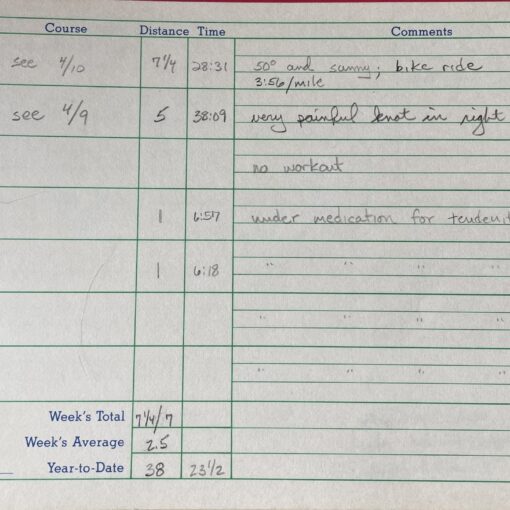 Course Distance Time Comments
see 4/10 7 1/4 28:31 50° and sunny; bike ride
3:56/mile
see 4/9 5 38:09 very painful knot in right
no workout
1 6:57 under medication for tendenit
1 6:18 " " " "
" " " "
" " " "
Week's Total 7 1/4/7
Week's Average 2.5
Year-to-Date 38 23 1/2